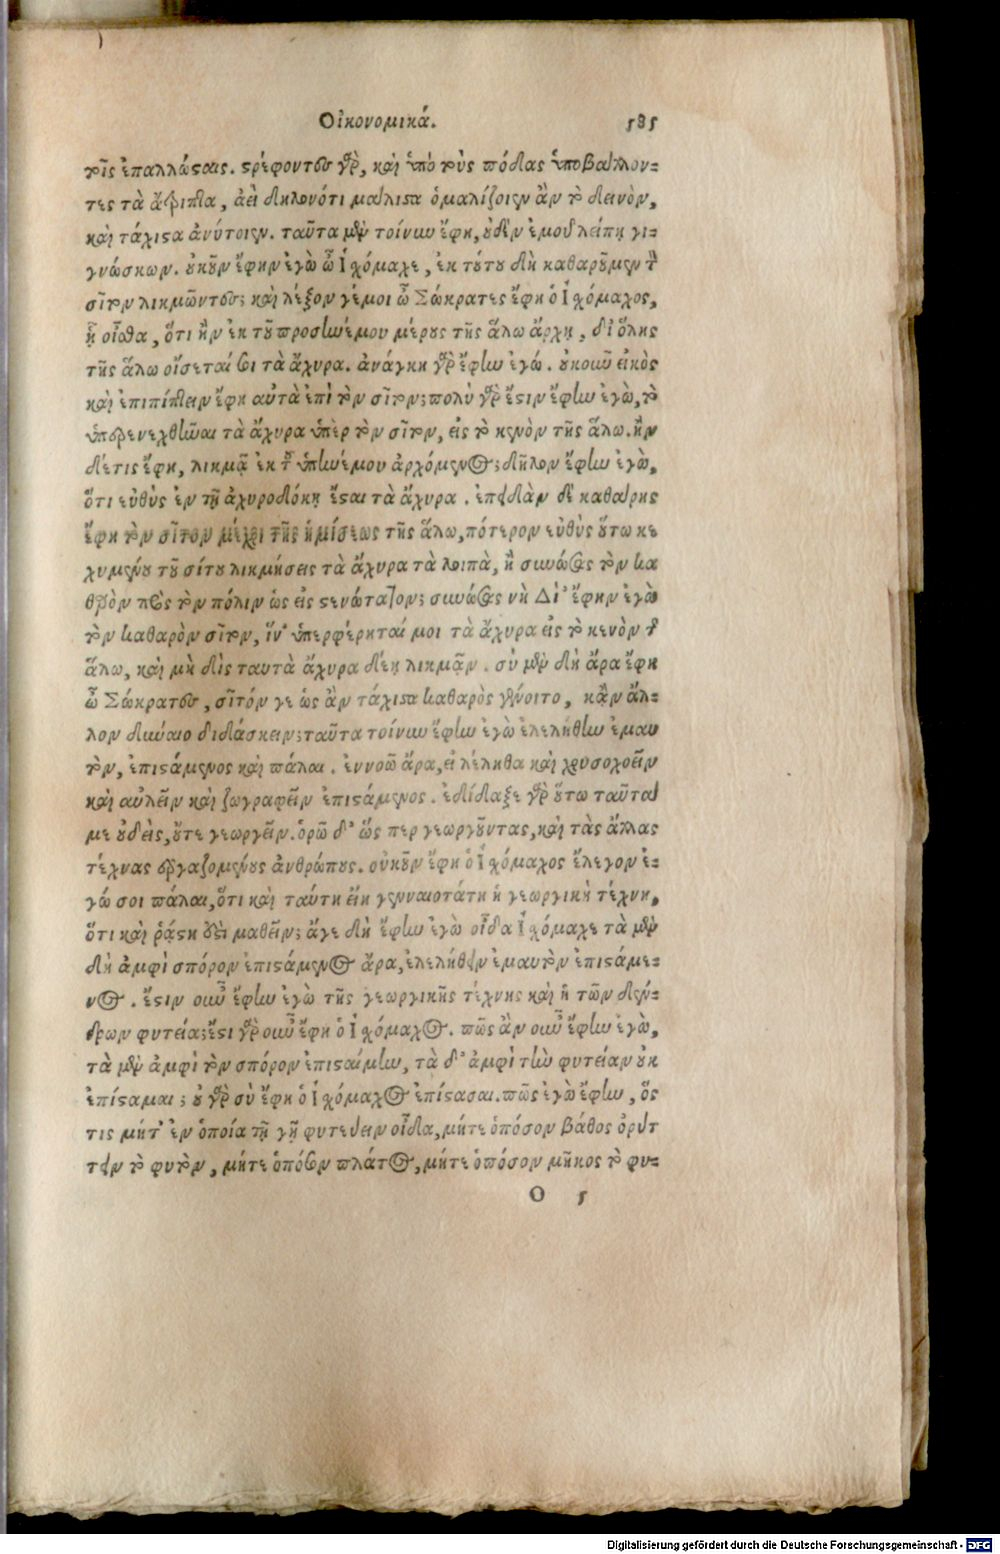 Οἰκονομικά. 585
τοῖς ἐπαλλώσταις. στρέφοντες γὰρ, καὶ ὑπὸ τοὺς πόδας ὑποβάλλον-
τες τὰ ἄτριπτα, ἀεὶ δηλονότι μάλιστα ὁμαλίζοιεν ἂν τὸ δεινὸν,
καὶ τάχιστα ἀνύτοιεν. ταῦτα μὲν τοίνυν ἔφη, οὐδὲν ἐμοῦ λείπῃ γι-
γνώσκων. οὐκοῦν ἔφην ἐγὼ ὦ Ἰσχόμαχε, ἐκ τούτου δὴ καθαροῦμεν τὸν
σῖτον λικμῶντες; καὶ λέξον γέ μοι ὦ Σώκρατες ἔφη ὁ Ἰσχόμαχος,
ἦ οἶσθα, ὅτι ἢν ἐκ τοῦ προσηνέμου μέρους τῆς ἅλω ἄρχῃ, δι' ὅλης
τῆς ἅλω οἴσεταί σοι τὰ ἄχυρα. ἀνάγκη γὰρ ἔφην ἐγώ. οὐκοῦν εἰκὸς
καὶ ἐπιπίπτειν ἔφη αὐτὰ ἐπὶ τὸν σῖτον; πολὺ γὰρ ἔστιν ἔφην ἐγὼ, τὸ
ὑπερενεχθῆναι τὰ ἄχυρα ὑπὲρ τὸν σῖτον, εἰς τὸ κενὸν τῆς ἅλω. ἢν
δέ τις ἔφη, λικμᾷ ἐκ τοῦ ὑπηνέμου ἀρχόμενος; δῆλον ἔφην ἐγὼ,
ὅτι εὐθὺς ἐν τῇ ἀχυροδόκῃ ἔσται τὰ ἄχυρα. ἐπειδὰν δὲ καθαίρῃς
ἔφη τὸν σῖτον μέχρι τῆς ἡμίσεως τῆς ἅλω, πότερον εὐθὺς οὕτω κε
χυμένου τοῦ σίτου λικμήσεις τὰ ἄχυρα τὰ λοιπὰ, ἢ συνώσας τὸν κα
θαρὸν πρὸς τὸν πόλιν ὡς εἰς στενώτατον; συνώσας νὴ Δί' ἔφην ἐγὼ
τὸν καθαρὸν σῖτον, ἵν' ὑπερφέρηταί μοι τὰ ἄχυρα εἰς τὸ κενὸν τῆς
ἅλω, καὶ μὴ δὶς ταυτὰ ἄχυρα δέῃ λικμᾷν. σὺ μὲν δὴ ἄρα ἔφη
ὦ Σώκρατες, σῖτόν γε ὡς ἂν τάχιστα καθαρὸς γένοιτο, κἂν ἄλ-
λον δύναιο διδάσκειν; ταῦτα τοίνυν ἔφην ἐγὼ ἐλελήθην ἐμαυ
τὸν, ἐπιστάμενος καὶ πάλαι. ἐννοῶ ἄρα, εἰ λέληθα καὶ χρυσοχοεῖν
καὶ αὐλεῖν καὶ ζωγραφεῖν ἐπιστάμενος. ἐδίδαξε γὰρ οὔτω ταῦτά
με οὐδεὶς, οὔτε γεωργεῖν. ὁρῶ δ' ὥς περ γεωργοῦντας, καὶ τὰς ἄλλας
τέχνας ἐργαζομένους ἀνθρώπους. οὐκοῦν ἔφη ὁ Ἰσχόμαχος ἔλεγον ἐ-
γώ σοι πάλαι, ὅτι καὶ ταύτῃ εἴη γενναιοτάτη ἡ γεωργικὴ τέχνη,
ὅτι καὶ ῥᾴστη ἐστὶ μαθεῖν; ἄγε δὴ ἔφην ἐγὼ οἶδα Ἰσχόμαχε τὰ μὲν
δὴ ἀμφὶ σπόρον ἐπιστάμενος ἄρα, ἐλελήθειν ἐμαυτὸν ἐπιστάμε-
νος. ἔστιν οὖν ἔφην ἐγὼ τῆς γεωργικῆς τέχνης καὶ ἡ τῶν δέν-
δρων φυτεία; ἔστι γὰρ οὖν ἔφη ὁ Ἰσχόμαχος. πῶς ἂν οὖν ἔφην ἐγὼ,
τὰ μὲν ἀμφὶ τὸν σπόρον ἐπισταίμην, τὰ δ' ἀμφὶ τὴν φυτείαν οὐκ
ἐπίσταμαι; οὐ γὰρ σὺ ἔφη ὁ Ἰσχόμαχος ἐπίστασαι. πῶς ἐγὼ ἔφην, ὅς
τις μήτ' ἐν ὁποίᾳ τῇ γῇ φυτεύειν οἶδα, μήτε ὁπόσον βάθος ὀρύτ
τειν τὸ φυτὸν, μήτε ὁπόσον πλάτος, μήτε ὁπόσον μῆκος τὸ φυ-
O 5
Digitalisierung gefördert durch die Deutsche Forschungsgemeinschaft - DFG